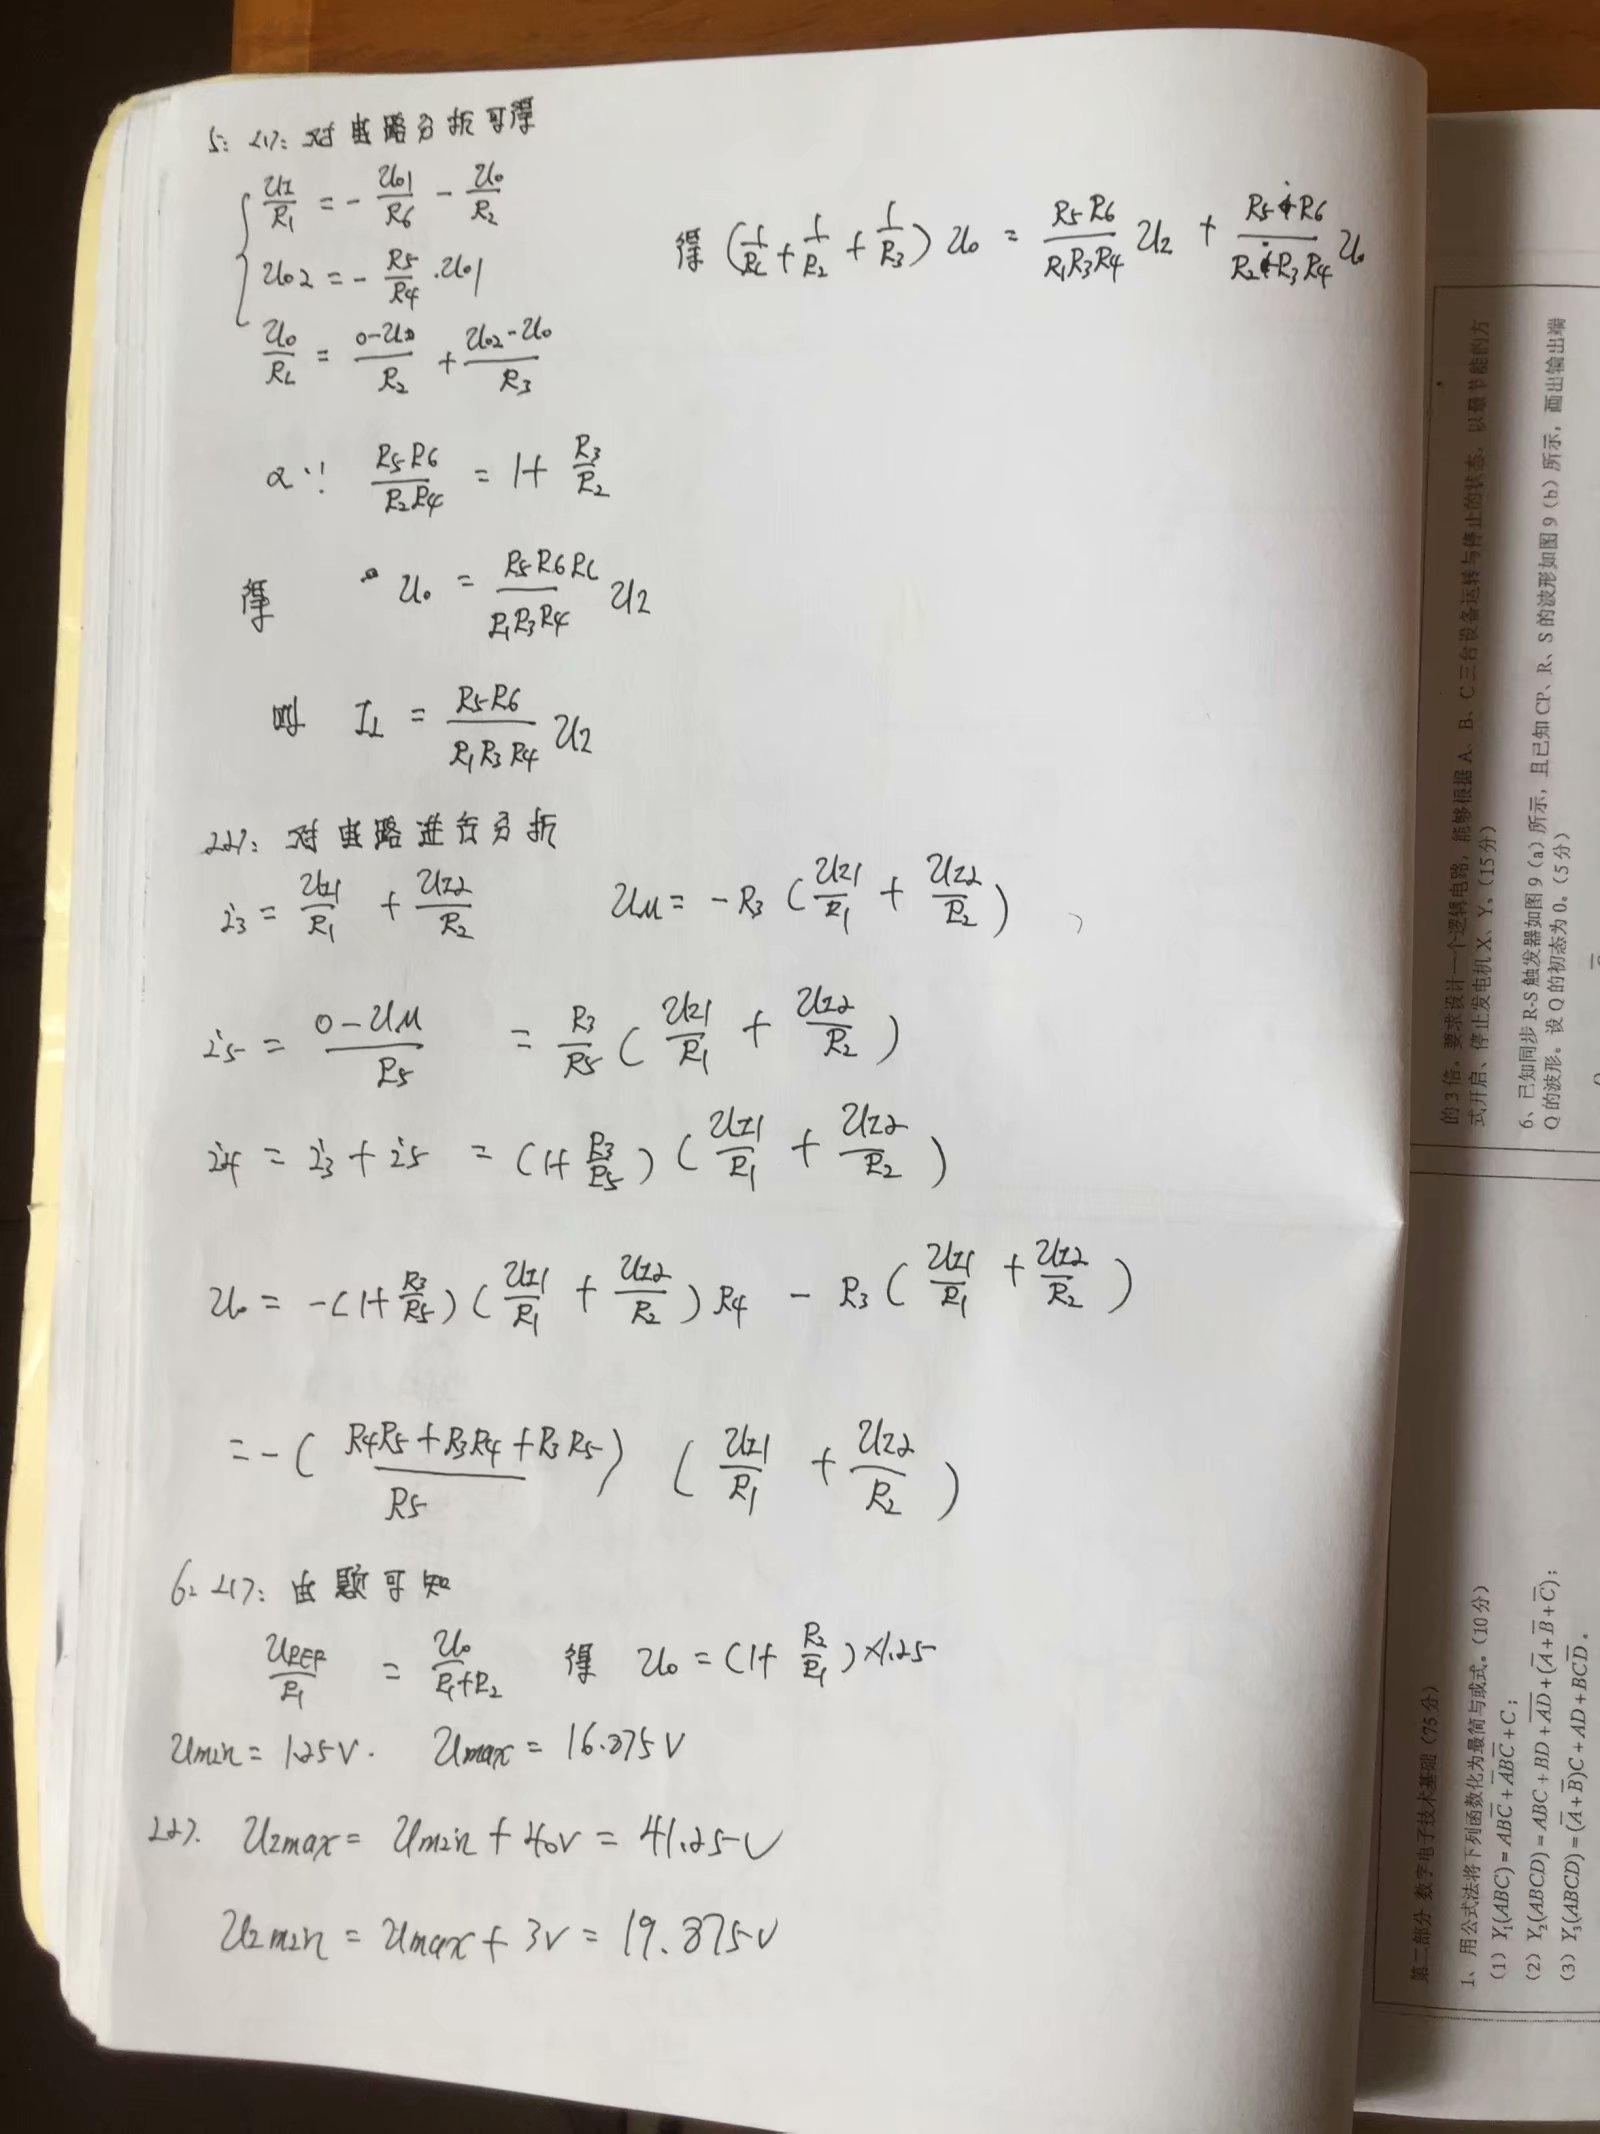 5: <1>: 对电路分析可得
U_I/R1 = - U01/R6 - U0/R2
U02 = - R5/R4 · U01
U0/RL = 0-U0/R2 + U02-U0/R3
得 (1/RL + 1/R2 + 1/R3) U0 = R5R6/R1R3R4 U2 + R5R6/R2R3R4 U0
又∵ R5R6/R2R4 = 1+ R3/R2
得 U0 = R5R6RL/R1R3R4 U2
则 IL = R5R6/R1R3R4 U2
<2>: 对电路进行分析
i3 = UI1/R1 + UI2/R2 UM = -R3 (UI1/R1 + UI2/R2)
i5 = 0-UM/R5 = R3/R5 (UI1/R1 + UI2/R2)
i4 = i3 + i5 = (1+ R3/R5) (UI1/R1 + UI2/R2)
U0 = -(1+ R3/R5) (UI1/R1 + UI2/R2) R4 - R3 (UI1/R1 + UI2/R2)
= - (R4R5+R3R4+R3R5/R5) (UI1/R1 + UI2/R2)
6. <1>: 由题可知
UREF/R1 = U0/R1+R2 得 U0 = (1+ R2/R1) ×1.25
Umin = 1.25V. Umax = 16.875V
<2>. UImax = Umin + 40V = 41.25V
UImin = Umax + 3V = 19.875V
的3倍。要求设计一个逻辑电路，能够根据A、B、C三台设备运转与停止的状态，以最节能的方
式开启、停止发电机X、Y。（15分）
6、已知同步R-S触发器如图9（a）所示，且已知CP、R、S的波形如图9（b）所示，画出输出端
Q的波形。设Q的初态为0。（5分）
第二部分 数字电子技术基础（75分）
1、用公式法将下列函数化为最简与或式。（10分）